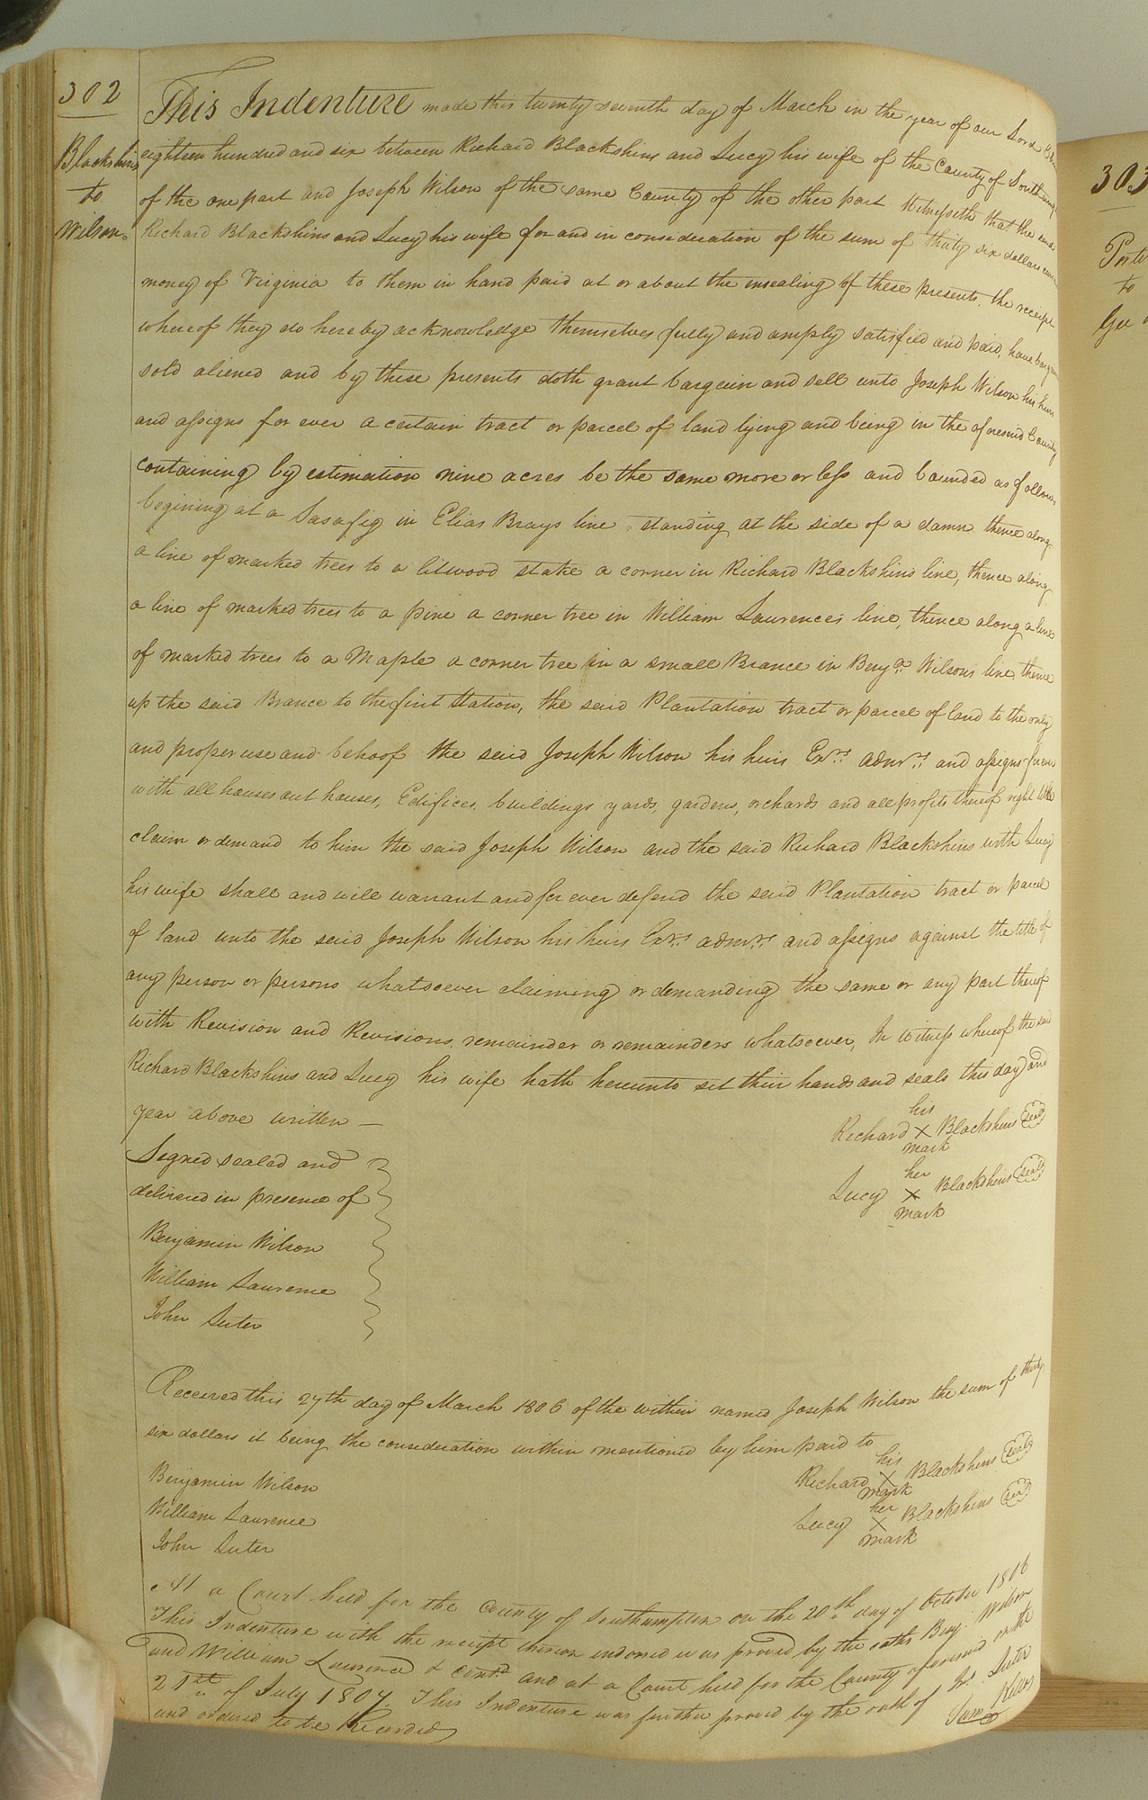 302
Blackshins
to
Wilson.
This Indenture made this twenty seventh day of March in the year of our Lord
eighteen hundred and six between Richard Blackshins and Lucy his wife of the County of Southamp
of the one part and Joseph Wilson of the same County of the other part Witnesseth that the said
Richard Blackshins and Lucy his wife for and in consideration of the sum of thirty six dollars
money of Virginia to them in hand paid at or about the ensealing of these presents, the receipt
whereof they do hereby acknowledge themselves fully and amply satisfied and paid, have
sold aliened and by these presents doth grant bargain and sell unto Joseph Wilson his heirs
and assigns for ever a certain tract or parcel of land lying and being in the aforesaid County
containing by estimation nine acres be the same more or less and bounded as follows
begining at a Sasafig in Elias Brays line standing at the side of a damn thence along
a line of marked trees to a litwood stake a corner in Richard Blackshins line, thence along
a line of marked trees to a pine a corner tree in William Lawrences line, thence along a line
of marked trees to a Maple a corner tree in a small Brance in Benjn. Wilsons line, thence
up the said Brance to the first Station, the said Plantation tract or parcel of land to the only
and proper use and behoof the said Joseph Wilson his heirs Exrs. admrs. and assigns forever
with all houses out houses, Edifices, buildings yards, gardens, orchards and all profits thereof right title
claim or demand to him the said Joseph Wilson and the said Richard Blackshins with Lucy
his wife shall and will warrant and for ever defend the said Plantation tract or parcel
of land unto the said Joseph Wilson his heirs Exrs. admrs. and assigns against the title of
any person or persons whatsoever claiming or demanding the same or any part thereof
with Revision and Revisions, remainder or remainders whatsoever, In witness whereof the said
Richard Blackshins and Lucy his wife hath hereunto set their hands and seals this day and
year above written —
his
Richard X Blackshins seal
mark
her
Lucy X Blackshins seal
mark
Signed sealed and
delivered in presence of
Benjamin Wilson
William Lawrence
John Suter
Received this 27th day of March 1806 of the within named Joseph Wilson the sum of thirty
six dollars it being the consideration within mentioned by him paid to
his
Richard X Blackshins seal
mark
her
Lucy X Blackshins seal
mark
Benjamin Wilson
William Lawrence
John Suter
At a Court held for the County of Southampton on the 20th day of October 1806
This Indenture with the receipt thereon indorsed was proved by the oaths Benj. Wilson
and William Lawrence & contd and at a Court held for the County aforesaid on the
21st of July 1807. This Indenture was further proved by the oath of Jno. Suter
and ordered to be Recorded
303
to